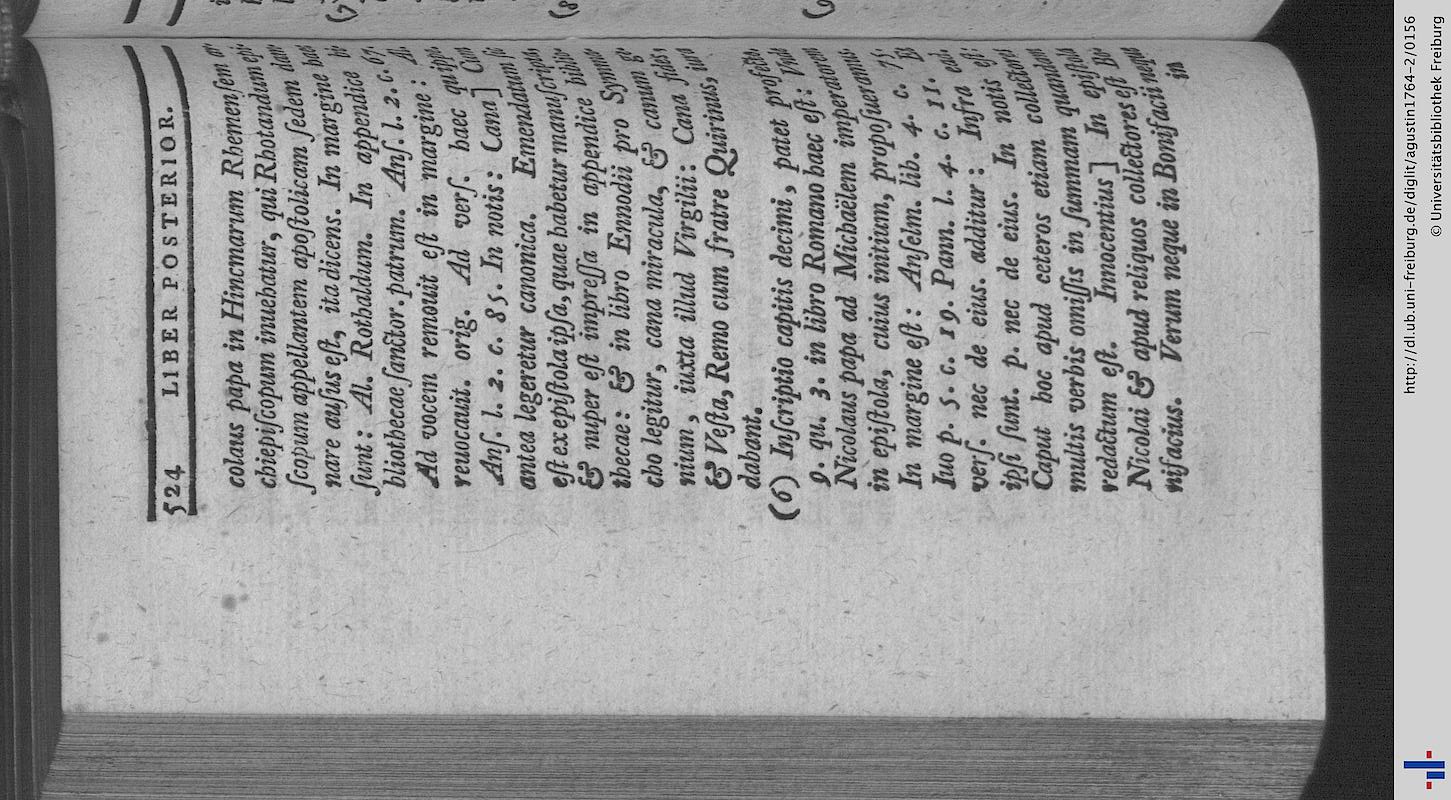 524 LIBER POSTERIOR.
colaus papa in Hincmarum Rhemenſem ar
chiepiſcopum inuehatur, qui Rhotandum epi
ſcopum appellantem apoſtolicam ſedem dam
nare auſus eſt, ita dicens. In margine haec
ſunt: Al. Rothaldum. In appendice bi
bliothecae ſanctor. patrum. Anſ. l. 2. c. 67.
Ad vocem remouit eſt in margine: Al.
reuocauit. orig. Ad verſ. haec quippe
Anſ. l. 2. c. 85. In notis: Cana] Cum
antea legeretur canonica. Emendatum
eſt ex epiſtola ipſa, quae habetur manuſcripta,
& nuper eſt impreſſa in appendice biblio
thecae: & in libro Ennodii pro Symma
cho legitur, cana miracula, & canum
nium, iuxta illud Virgilii: Cana fides,
& Veſta, Remo cum fratre Quirinus, iura
dabant.
(6) Inſcriptio capitis decimi, patet profecto
9. qu. 3. in libro Romano haec eſt: Vnde
Nicolaus papa ad Michaëlem imperatorem
in epiſtola, cuius initium, propoſueramus.
In margine eſt: Anſelm. lib. 4. c.
Iuo p. 5. c. 19. Pann. l. 4. c. 11.
verſ. nec de eius. additur: Infra ead.
ipſi ſunt. p. nec de eius. In notis eſt:
Caput hoc apud ceteros etiam collectores
multis verbis omiſſis in ſummam quandam
redactum eſt. Innocentius] In epiſtola
Nicolai & apud reliquos collectores eſt Bo
nifacius. Verum neque in Bonifacii neque
in
http://dl.ub.uni-freiburg.de/diglit/agustin1764-2/0156
© Universitätsbibliothek Freiburg